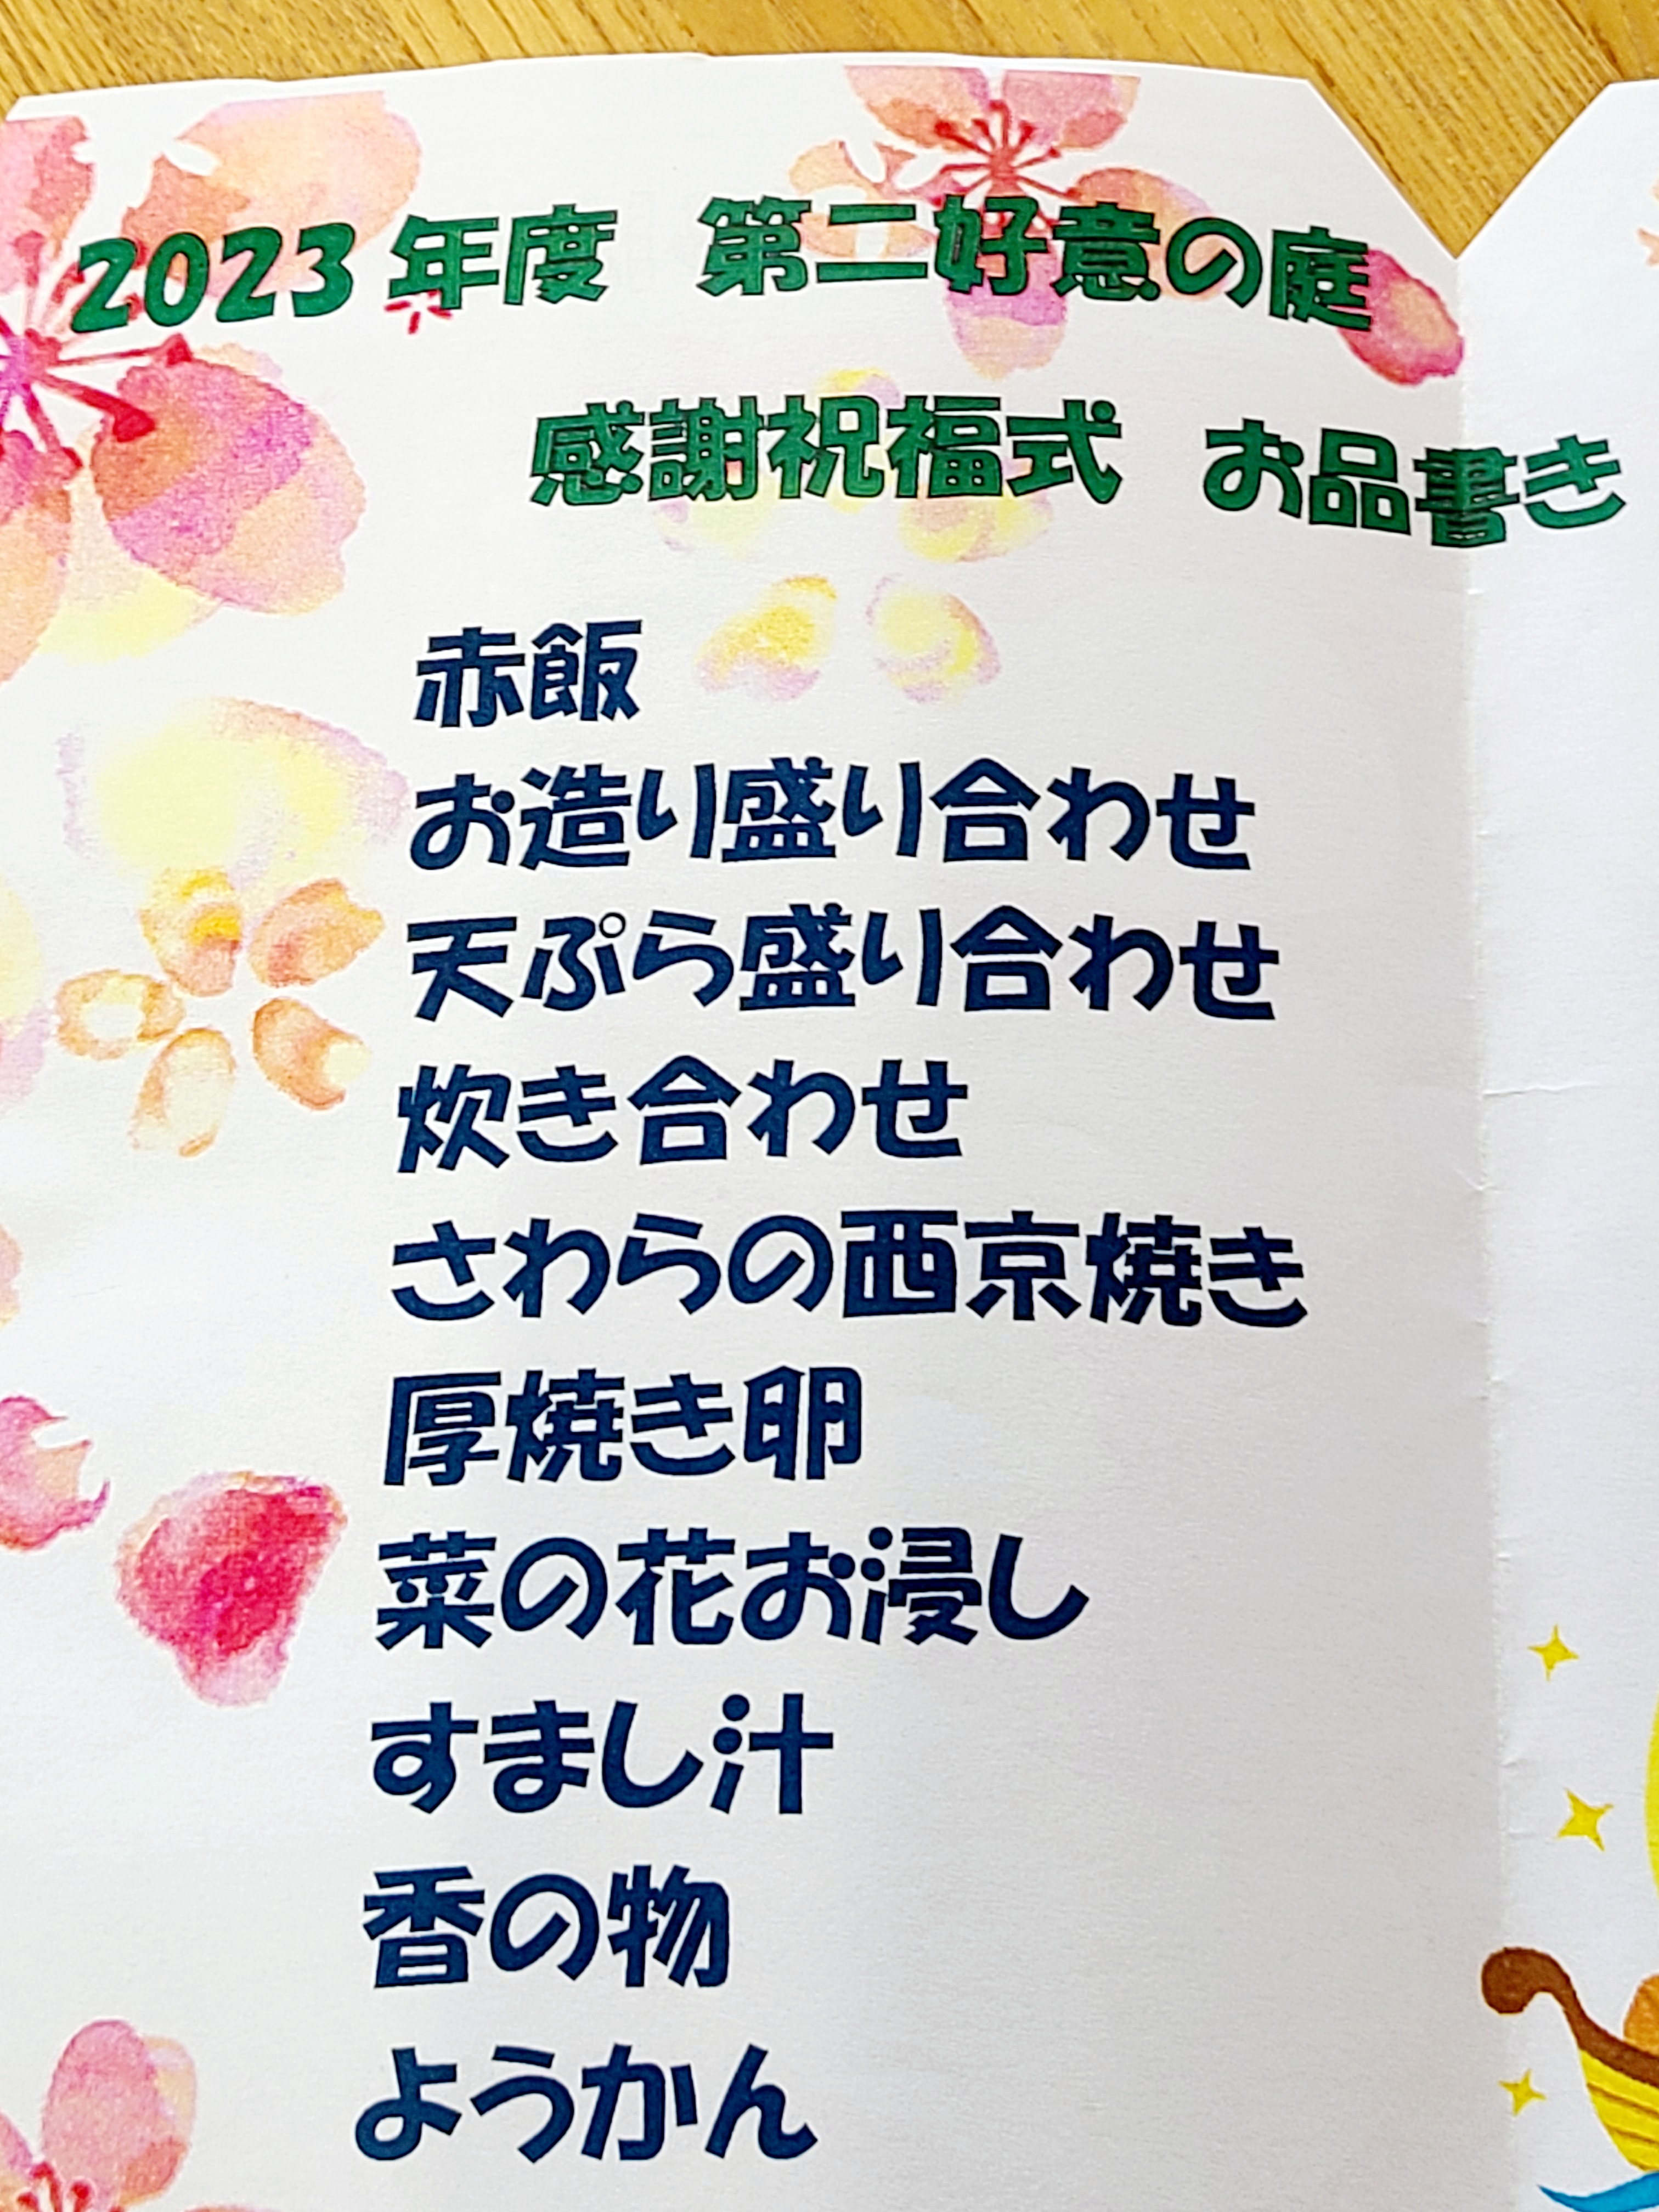 2023年度 第二好意の庭
感謝祝福式 お品書き
赤飯
お造り盛り合わせ
天ぷら盛り合わせ
炊き合わせ
さわらの西京焼き
厚焼き卵
菜の花お浸し
すまし汁
香の物
ようかん